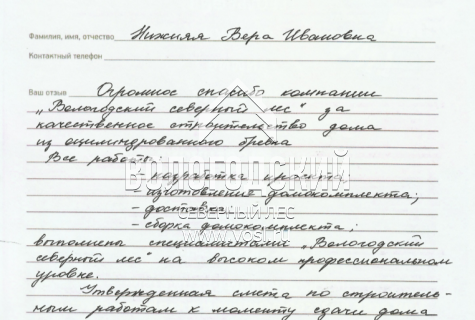 Фамилия, имя, отчество Нижняя Вера Ивановна
Контактный телефон
Ваш отзыв Огромное спасибо компании
„Вологодский северный лес" за
качественное строительство дома
из оцилиндрованного бревна
Все работы:
- разработка проекта
- изготовление домокомплекта;
- доставка
- сборка домокомплекта;
выполнены специалистами „Вологодский
северный лес" на высоком профессиональном
уровне.
Утвержденная смета по строитель-
ным работам к моменту сдачи дома
ВОЛОГОДСКИЙ
СЕВЕРНЫЙ ЛЕС